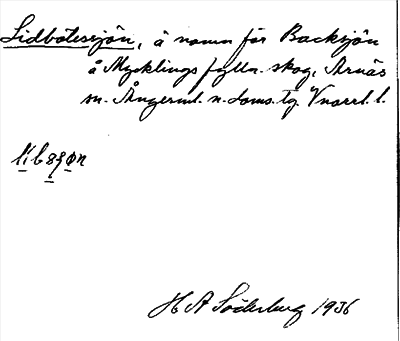 Lidbötessjön, ä namn för Backsjön
å Mycklings fylln. skog, Arnäs
sn. Ångerml. n. doms. tg. Vnorrl. l.
H A Söderberg 1936